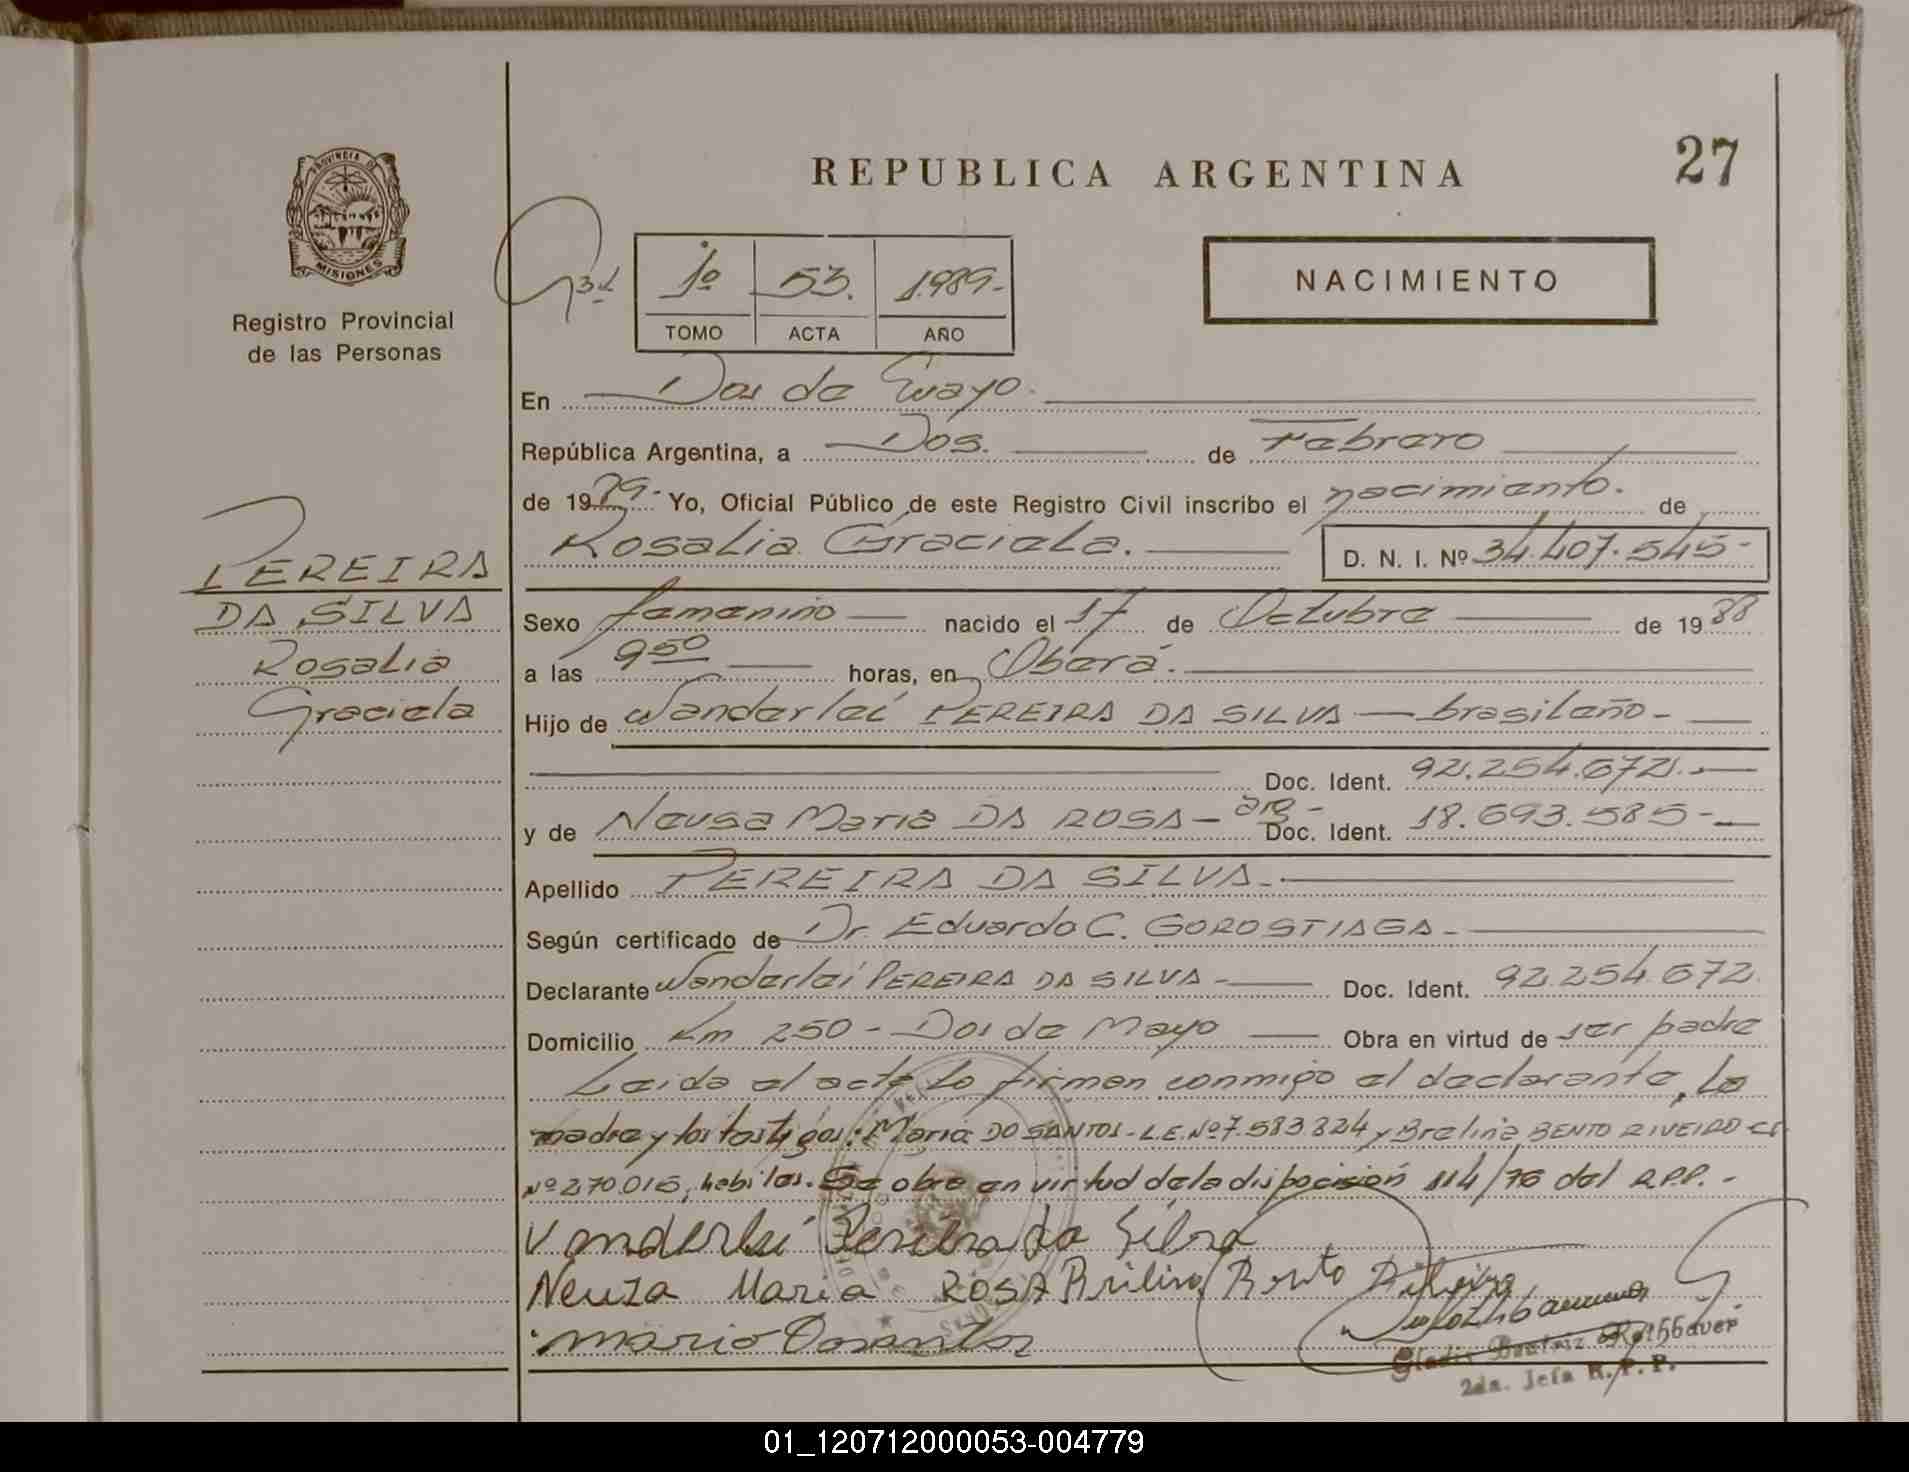 27
REPUBLICA ARGENTINA
PROVINCIA DE
MISIONES
Registro Provincial
de las Personas
1º 53. 1.989.-
TOMO ACTA AÑO
NACIMIENTO
En Dos de Mayo.
República Argentina, a Dos. de Febrero
de 19 Yo, Oficial Público de este Registro Civil inscribo el nacimiento. de
Rosalia Graciela. D. N. I. Nº 34.407.545-
PEREIRA
DA SILVA
Rosalia
Graciela
Sexo femenino nacido el 17 de Octubre de 1988
a las 9 50 horas, en Oberá.
Hijo de Wanderlei PEREIRA DA SILVA - brasileño -
Doc. Ident. 92.254.672.-
y de Neusa Maria DA ROSA - arg - Doc. Ident. 18.693.585-
Apellido PEREIRA DA SILVA.-
Según certificado de Dr. Eduardo C. GOROSTIAGA-
Declarante Wanderlei PEREIRA DA SILVA - Doc. Ident. 92.254.672
Domicilio Km 250 - Dos de Mayo Obra en virtud de ser padre
Leida el acta la firman conmigo el declarante, la
madre y los testigos: Mario DO SANTOS - L.E. Nº 7.583.824 y Brelina BENTO RIVEIRO CI
Nº 270.015, habiles. Se obra en virtud de la disposición 114/76 del R.P.P. -
Vanderlei Pereira da Silva
Neuza Maria ROSA Bento
Mario Dosantos
Gladis Beatriz Rothbauer
2da. Jefa R.P.P.
01_120712000053-004779